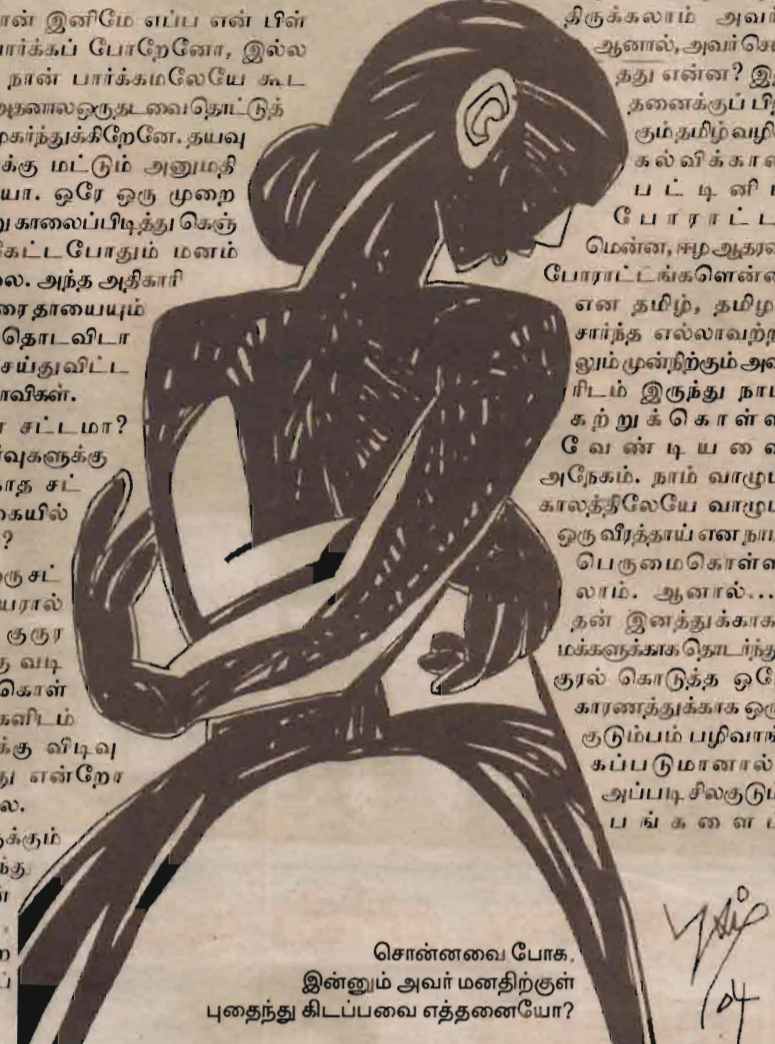 ான் இனிமே எப்ப என் பிள்
பார்க்கப் போறேனோ, இல்ல
நான் பார்க்கமலேயே கூட
அதனால ஒரு தடவை தொட்டுத்
முகர்ந்துக்கிறேனே. தயவு
க்கு மட்டும் அனுமதி
யா. ஒரே ஒரு முறை
று காலைப்பிடித்து கெஞ்
கேட்டபோதும் மனம்
லை. அந்த அதிகாரி
ரை தாயையும்
தொடவிடா
செய்துவிட்ட
ாவிகள்.
சட்டமா?
ர்வுகளுக்கு
காத சட்
கையில்
?
ரு சட்
யரால்
குரூர
ரு வடி
கொள்
களிடம்
க்கு விடிவு
து என்றோ
லை.
ருக்கும்
ந்து
திருக்கலாம் அவர்
ஆனால், அவர் சொ
தது என்ன? இத்
தனைக்குப் பிற
கும் தமிழ்வழி
கல்விக்கான
பட்டினிப்
போராட்ட
மென்ன, ஈழ ஆதரவு
போராட்டங்களென்ன
என தமிழ், தமிழ
சார்ந்த எல்லாவற்றி
லும் முன்நிற்கும் அவ
ரிடம் இருந்து நாம்
கற்றுக்கொள்ள
வேண்டியவை
அநேகம். நாம் வாழும்
காலத்திலேயே வாழும்
ஒரு வீரத்தாய் என நாம்
பெருமைகொள்ள
லாம். ஆனால்...
தன் இனத்துக்காக
மக்களுக்காக தொடர்ந்து
குரல் கொடுத்த ஒரே
காரணத்துக்காக ஒரு
குடும்பம் பழிவாங்
கப்படுமானால்
அப்படி சில குடும்
பங்களை
சொன்னவை போக,
இன்னும் அவர் மனதிற்குள்
புதைந்து கிடப்பவை எத்தனையோ?
04